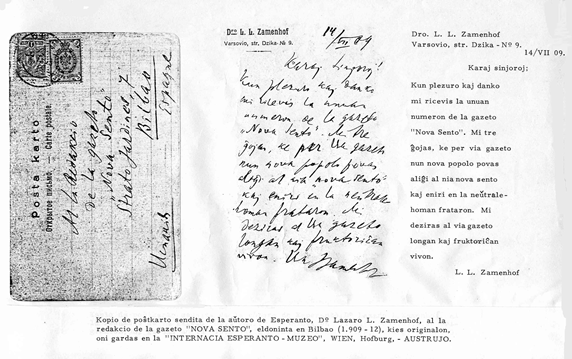 Posta karto
Открытое письмо — Carte postale
Al la Redakcio
de la gazeto
"Nova Sento"
Strato Jardines, 7
Bilbao
Dro. L. L. Zamenhof
Varsovio, str. Dzika № 9.
14/VII 09
Karaj sinjoroj!
Kun plezuro kaj danko
mi ricevis la unuan
numeron de la gazeto
"Nova Sento". Mi tre
ĝojas, ke per via gazeto
nun nova popolo povas
aliĝi al nia nova sento
kaj eniri en la neŭtrale-
homan frataron. Mi
deziras al via gazeto
longan kaj fruktoriĉan
vivon. Via Zamenhof
Dro. L. L. Zamenhof
Varsovio, str. Dzika - Nº 9.
14/VII 09.
Karaj sinjoroj:
Kun plezuro kaj danko
mi ricevis la unuan
numeron de la gazeto
"Nova Sento". Mi tre
ĝojas, ke per via gazeto
nun nova popolo povas
aliĝi al nia nova sento
kaj eniri en la neŭtrale-
homan frataron. Mi
deziras al via gazeto
longan kaj fruktoriĉan
vivon.
L. L. Zamenhof
Kopio de poŝtkarto sendita de la aŭtoro de Esperanto, Dº Lazaro L. Zamenhof, al la
redakcio de la gazeto "NOVA SENTO", eldoninta en Bilbao (1.909 - 12), kies originalon,
oni gardas en la "INTERNACIA ESPERANTO - MUZEO", WIEN, Hofburg, - AUSTRUJO.